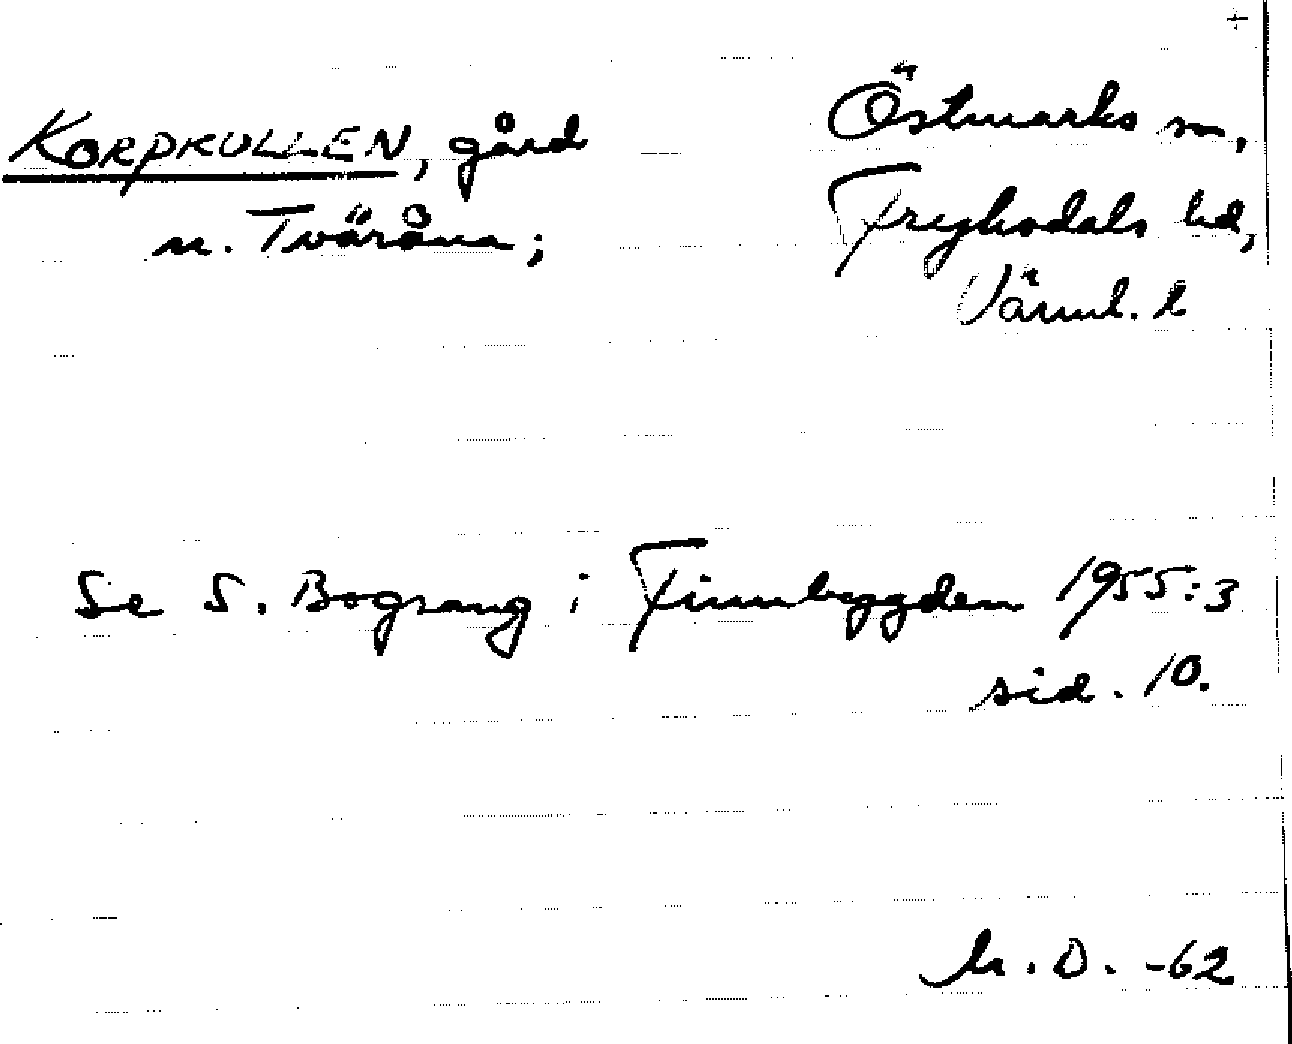 KORPKULLEN, gård
n. Tväråna;
Östmarks sn,
Fryksdals hd,
Värml. l
Se S. Bograng i Finnbygden 1955:3
sid. 10.
D. -62